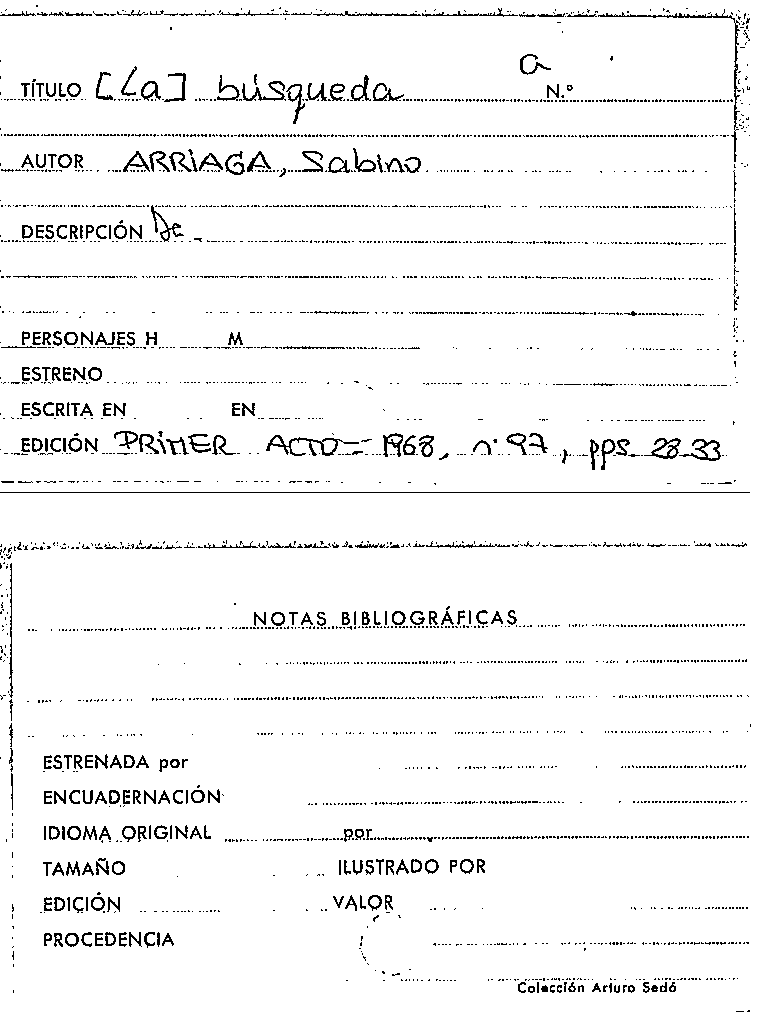 a
TÍTULO [La] búsqueda N.º
AUTOR ARRIAGA, Sabino
DESCRIPCIÓN De
PERSONAJES H M
ESTRENO
ESCRITA EN EN
EDICIÓN PRIMER ACTO = 1968, nº 97, pps. 28-33
NOTAS BIBLIOGRÁFICAS
ESTRENADA por
ENCUADERNACIÓN
IDIOMA ORIGINAL por
TAMAÑO ILUSTRADO POR
EDICIÓN VALOR
PROCEDENCIA
Colección Arturo Sedó